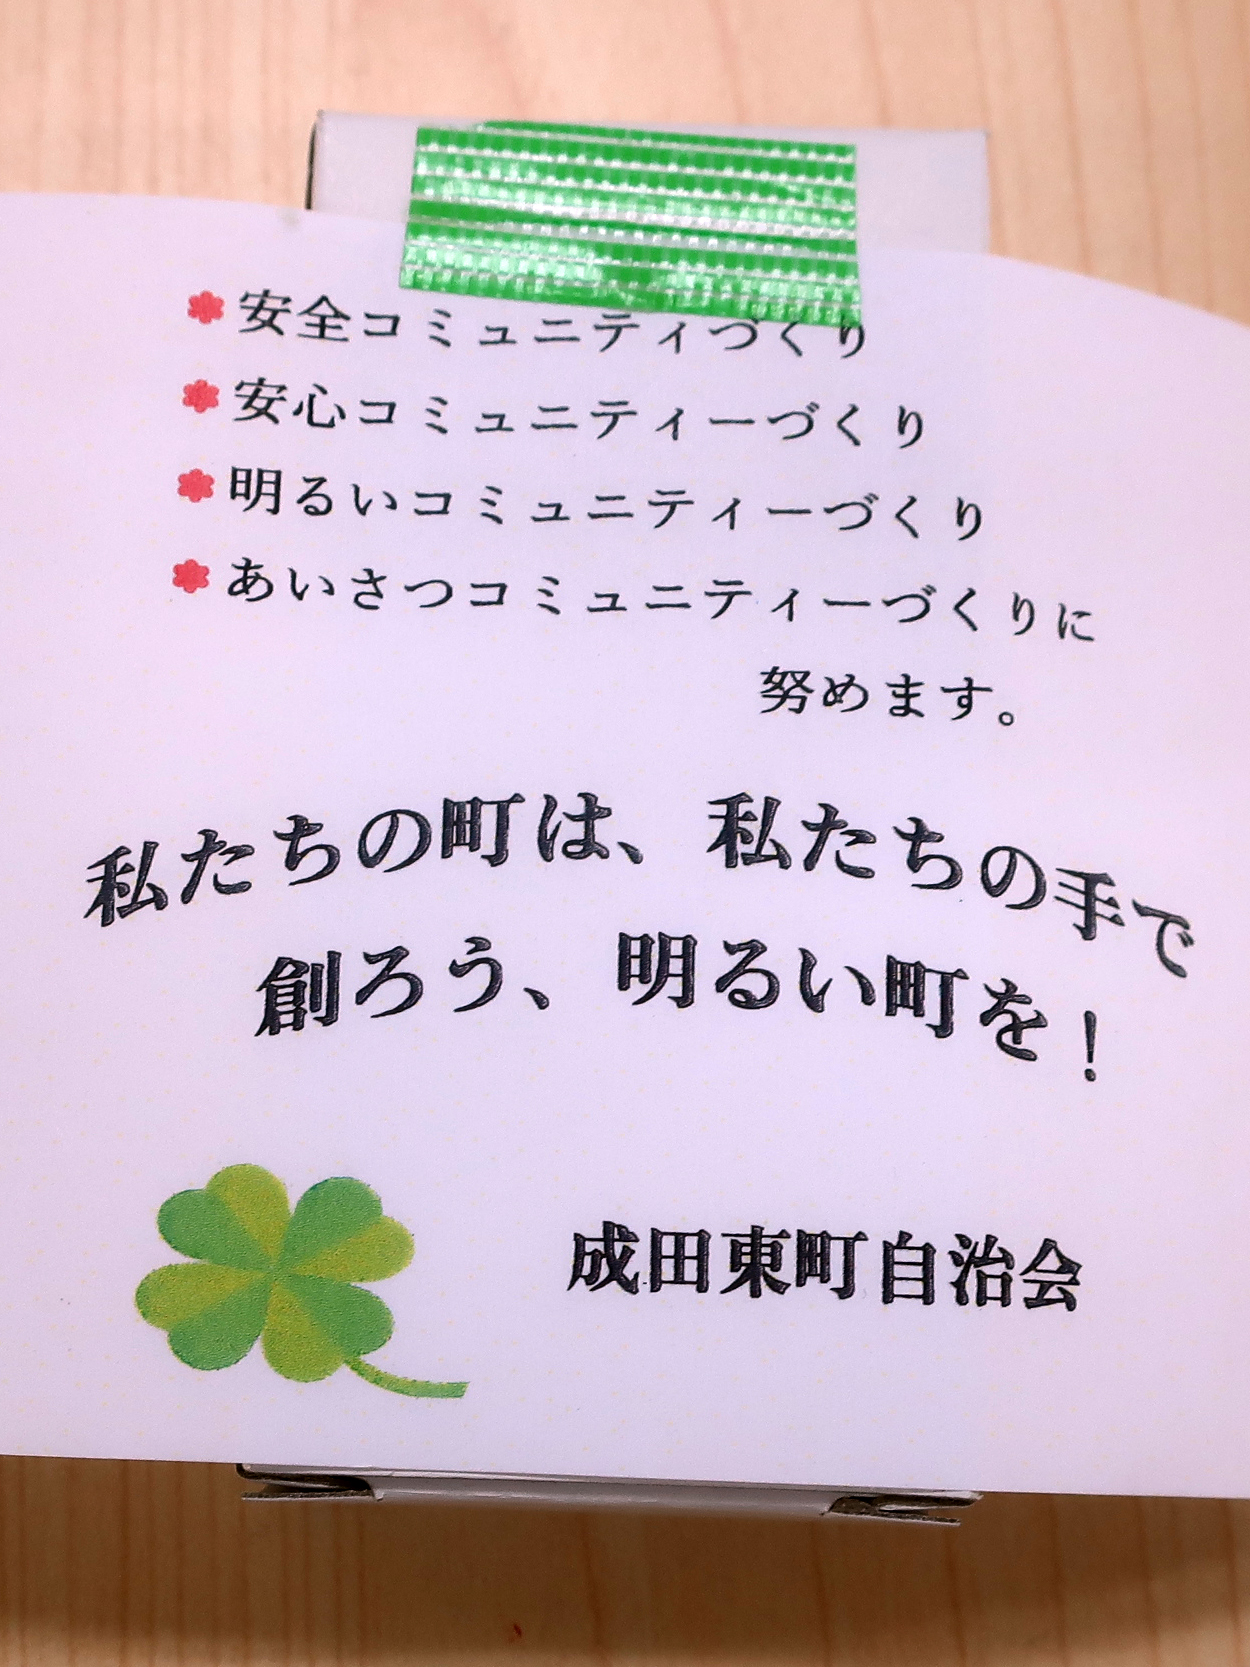 安全コミュニティづくり
安心コミュニティーづくり
明るいコミュニティーづくり
あいさつコミュニティーづくりに
努めます。
私たちの町は、私たちの手で
創ろう、明るい町を！
成田東町自治会